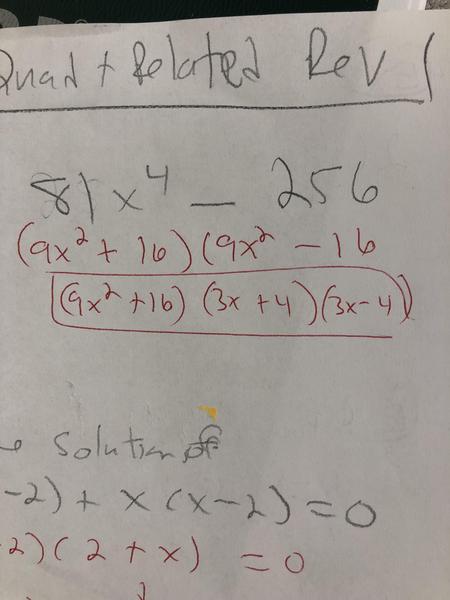 Quad + Related Rev
81x⁴ - 256
(9x² + 16)(9x² - 16
(9x² + 16)(3x + 4)(3x - 4)
Solution of
-2) + x(x-2) = 0
2)(2 + x) = 0